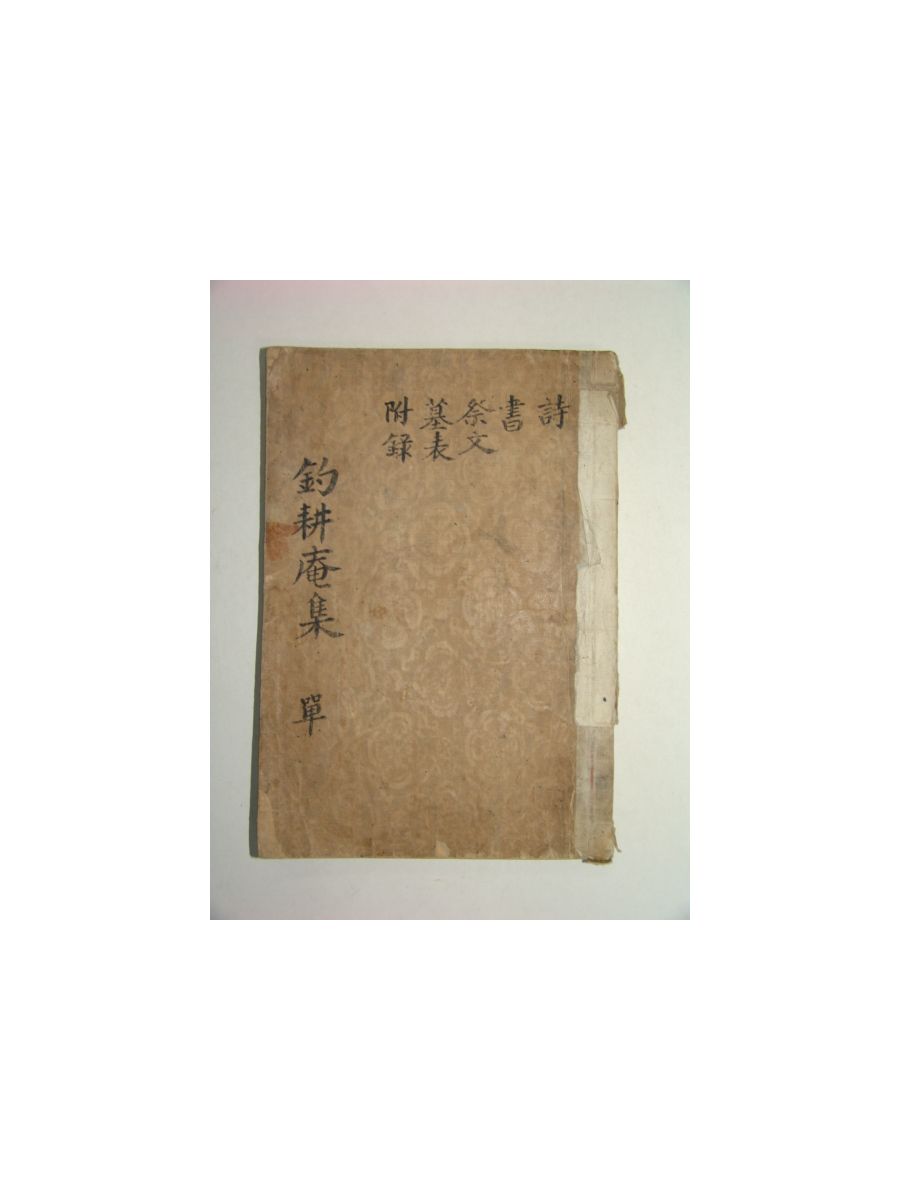 詩
書
祭文
墓表
附錄
釣耕庵集 單